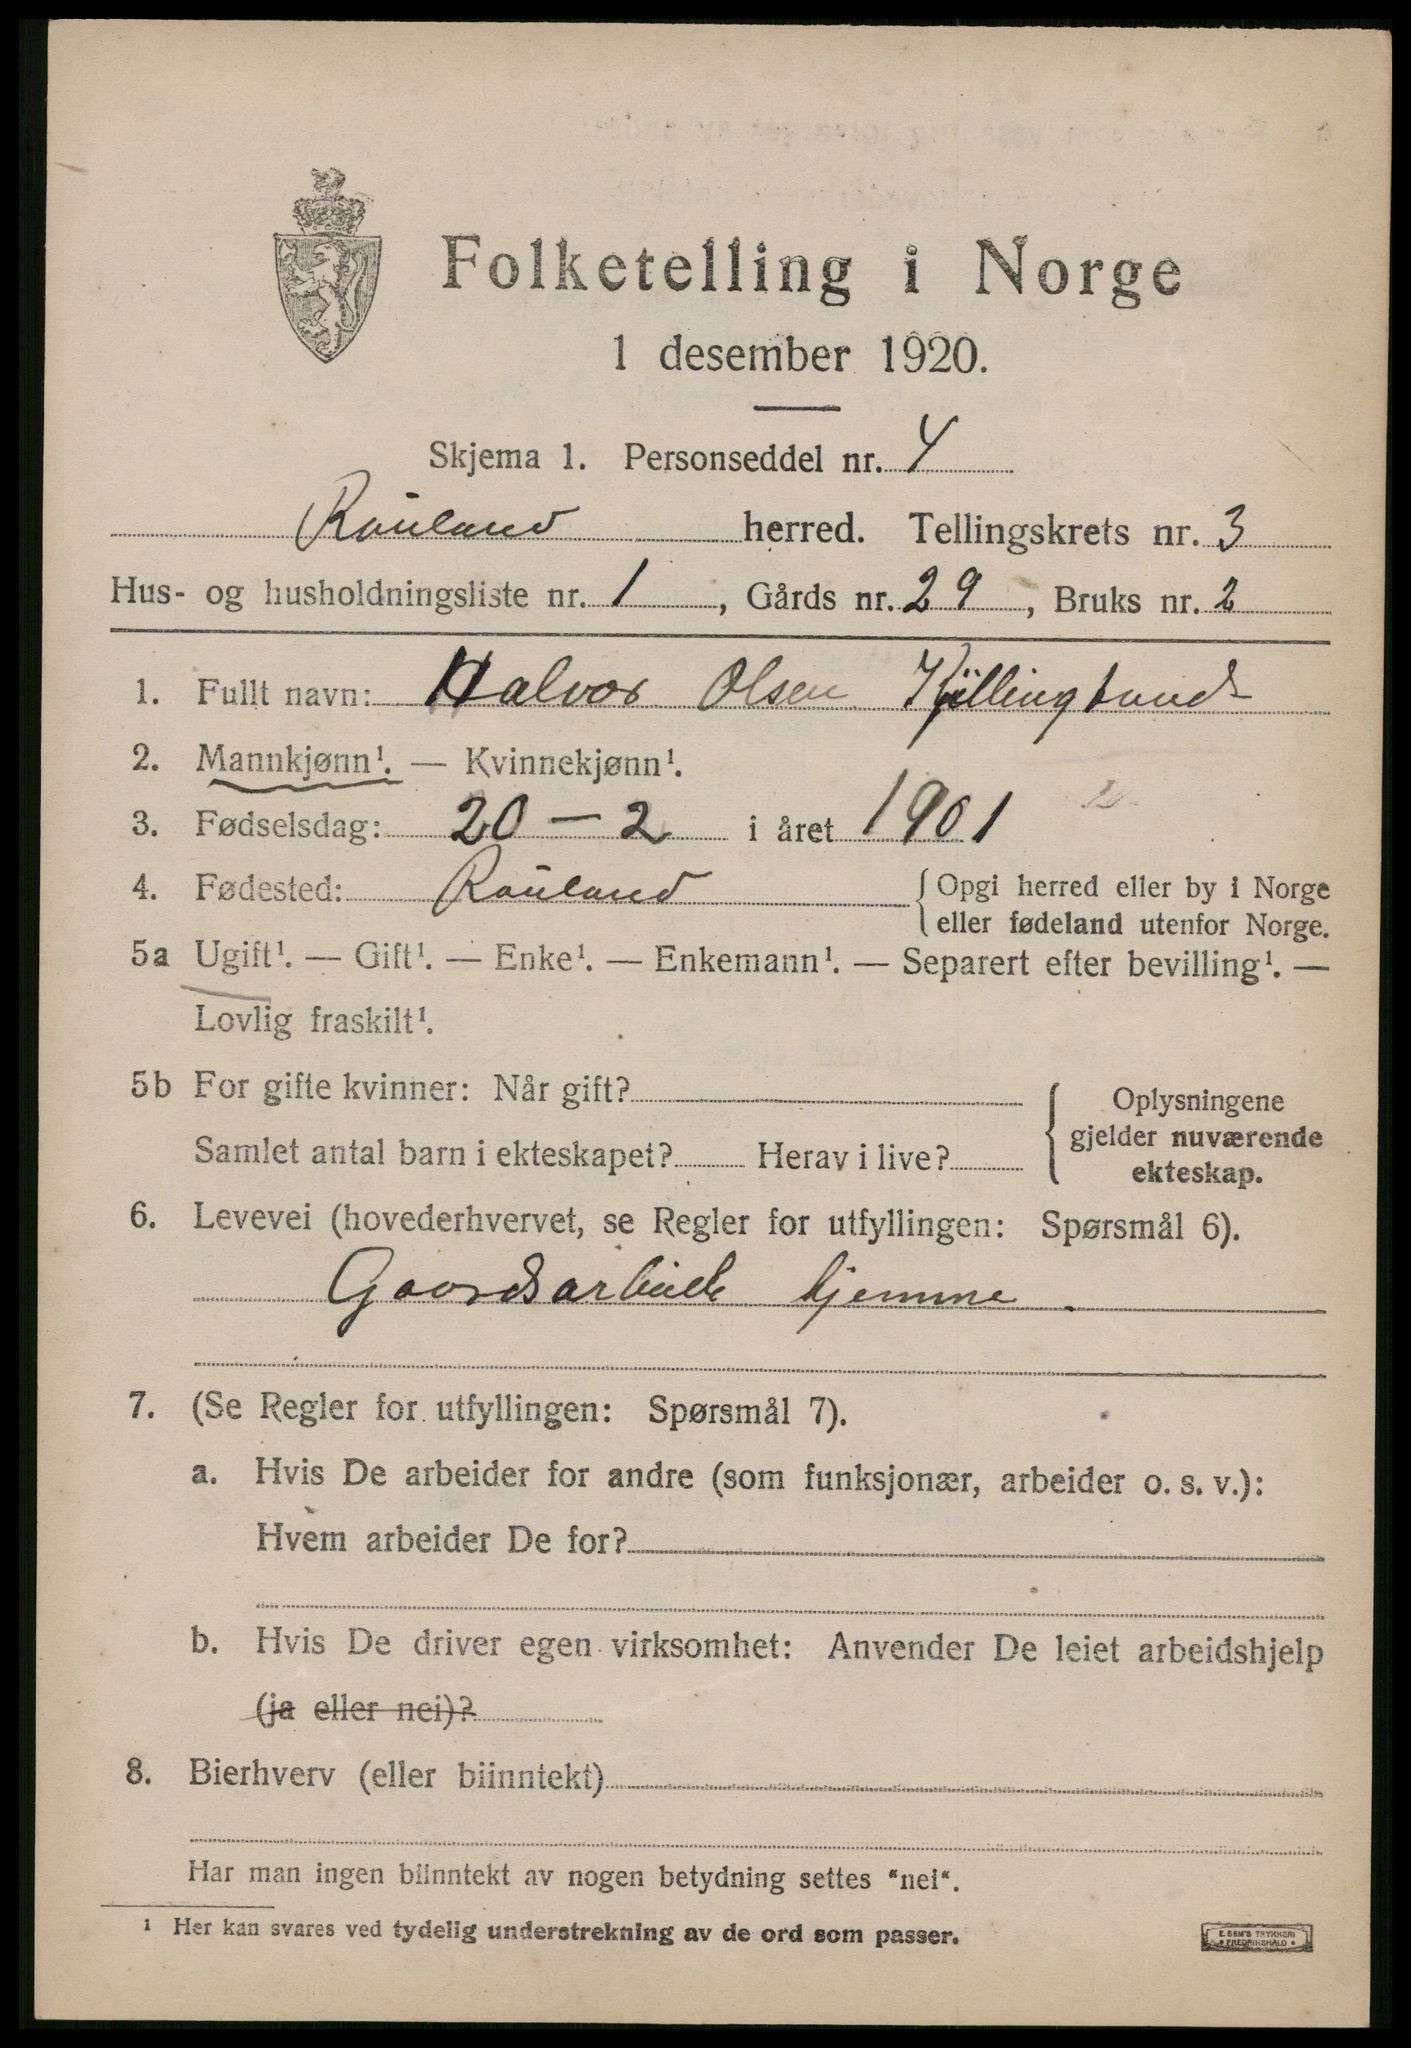 Folketelling i Norge
1 desember 1920.
Skjema 1. Personseddel nr. 4
Rauland herred. Tellingskrets nr. 3
Hus- og husholdningsliste nr. 1, Gårds nr. 29, Bruks nr. 2
1. Fullt navn: Halvor Olsen
2. Mannkjønn¹. — Kvinnekjønn¹.
3. Fødselsdag: 20 - 2 i året 1901
4. Fødested: Rauland { Opgi herred eller by i Norge
eller fødeland utenfor Norge.
5a Ugift¹. — Gift¹. — Enke¹. — Enkemann¹. — Separert efter bevilling¹. —
Lovlig fraskilt¹.
5b For gifte kvinner: Når gift?
Samlet antal barn i ekteskapet? Herav i live?
Oplysningene
gjelder nuværende
ekteskap.
6. Levevei (hovederhvervet, se Regler for utfyllingen: Spørsmål 6).
Gaardsarbeide hjemme.
7. (Se Regler for utfyllingen: Spørsmål 7).
a. Hvis De arbeider for andre (som funksjonær, arbeider o. s. v.):
Hvem arbeider De for?
b. Hvis De driver egen virksomhet: Anvender De leiet arbeidshjelp
(ja eller nei)?
8. Bierhverv (eller biinntekt)
Har man ingen biinntekt av nogen betydning settes "nei".
¹ Her kan svares ved tydelig understrekning av de ord som passer.
E. SEM'S TRYKKERI
FREDRIKSHALD